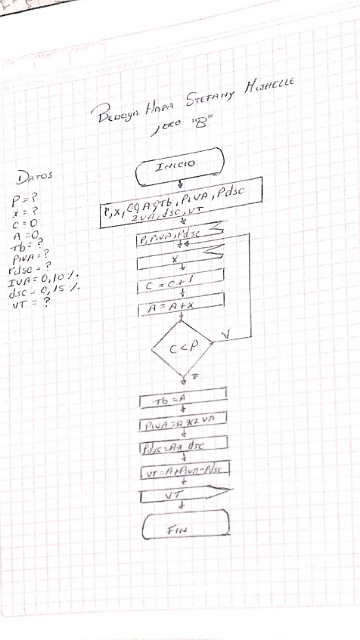 BEDOYA HAPA STEFANY MISHELLE
1ERO "B"
DATOS
P = ?
x = ?
C = 0
A = 0
Tb = ?
PIVA = ?
Pdsc = ?
IVA = 0,10 %
dsc = 0,15 %
VT = ?
INICIO
P, x, C=0, A=0, Tb, PIVA, Pdsc
IVA, dsc, VT
P, PIVA, Pdsc
x
C = C+1
A = A+x
C < P
V
F
Tb = A
PIVA = A*IVA
Pdsc = A*dsc
VT = A+PIVA-Pdsc
VT
FIN